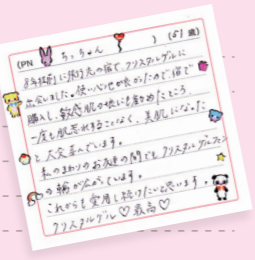 (PN ちっちゃん ) (51歳)
8年程前に旅行先の宿で、クリスタルゲルに
出会いました。使い心地が良かったので宿で
購入し、敏感肌の娘にも勧めたところ
一度も肌荒れすることなく、美肌になった
と大喜んでいます。
私のまわりのお友達の間でもクリスタルゲルファン
の輪が広がっています。
これからも愛用し続けたいと思います。
クリスタルゲル♡最高♡